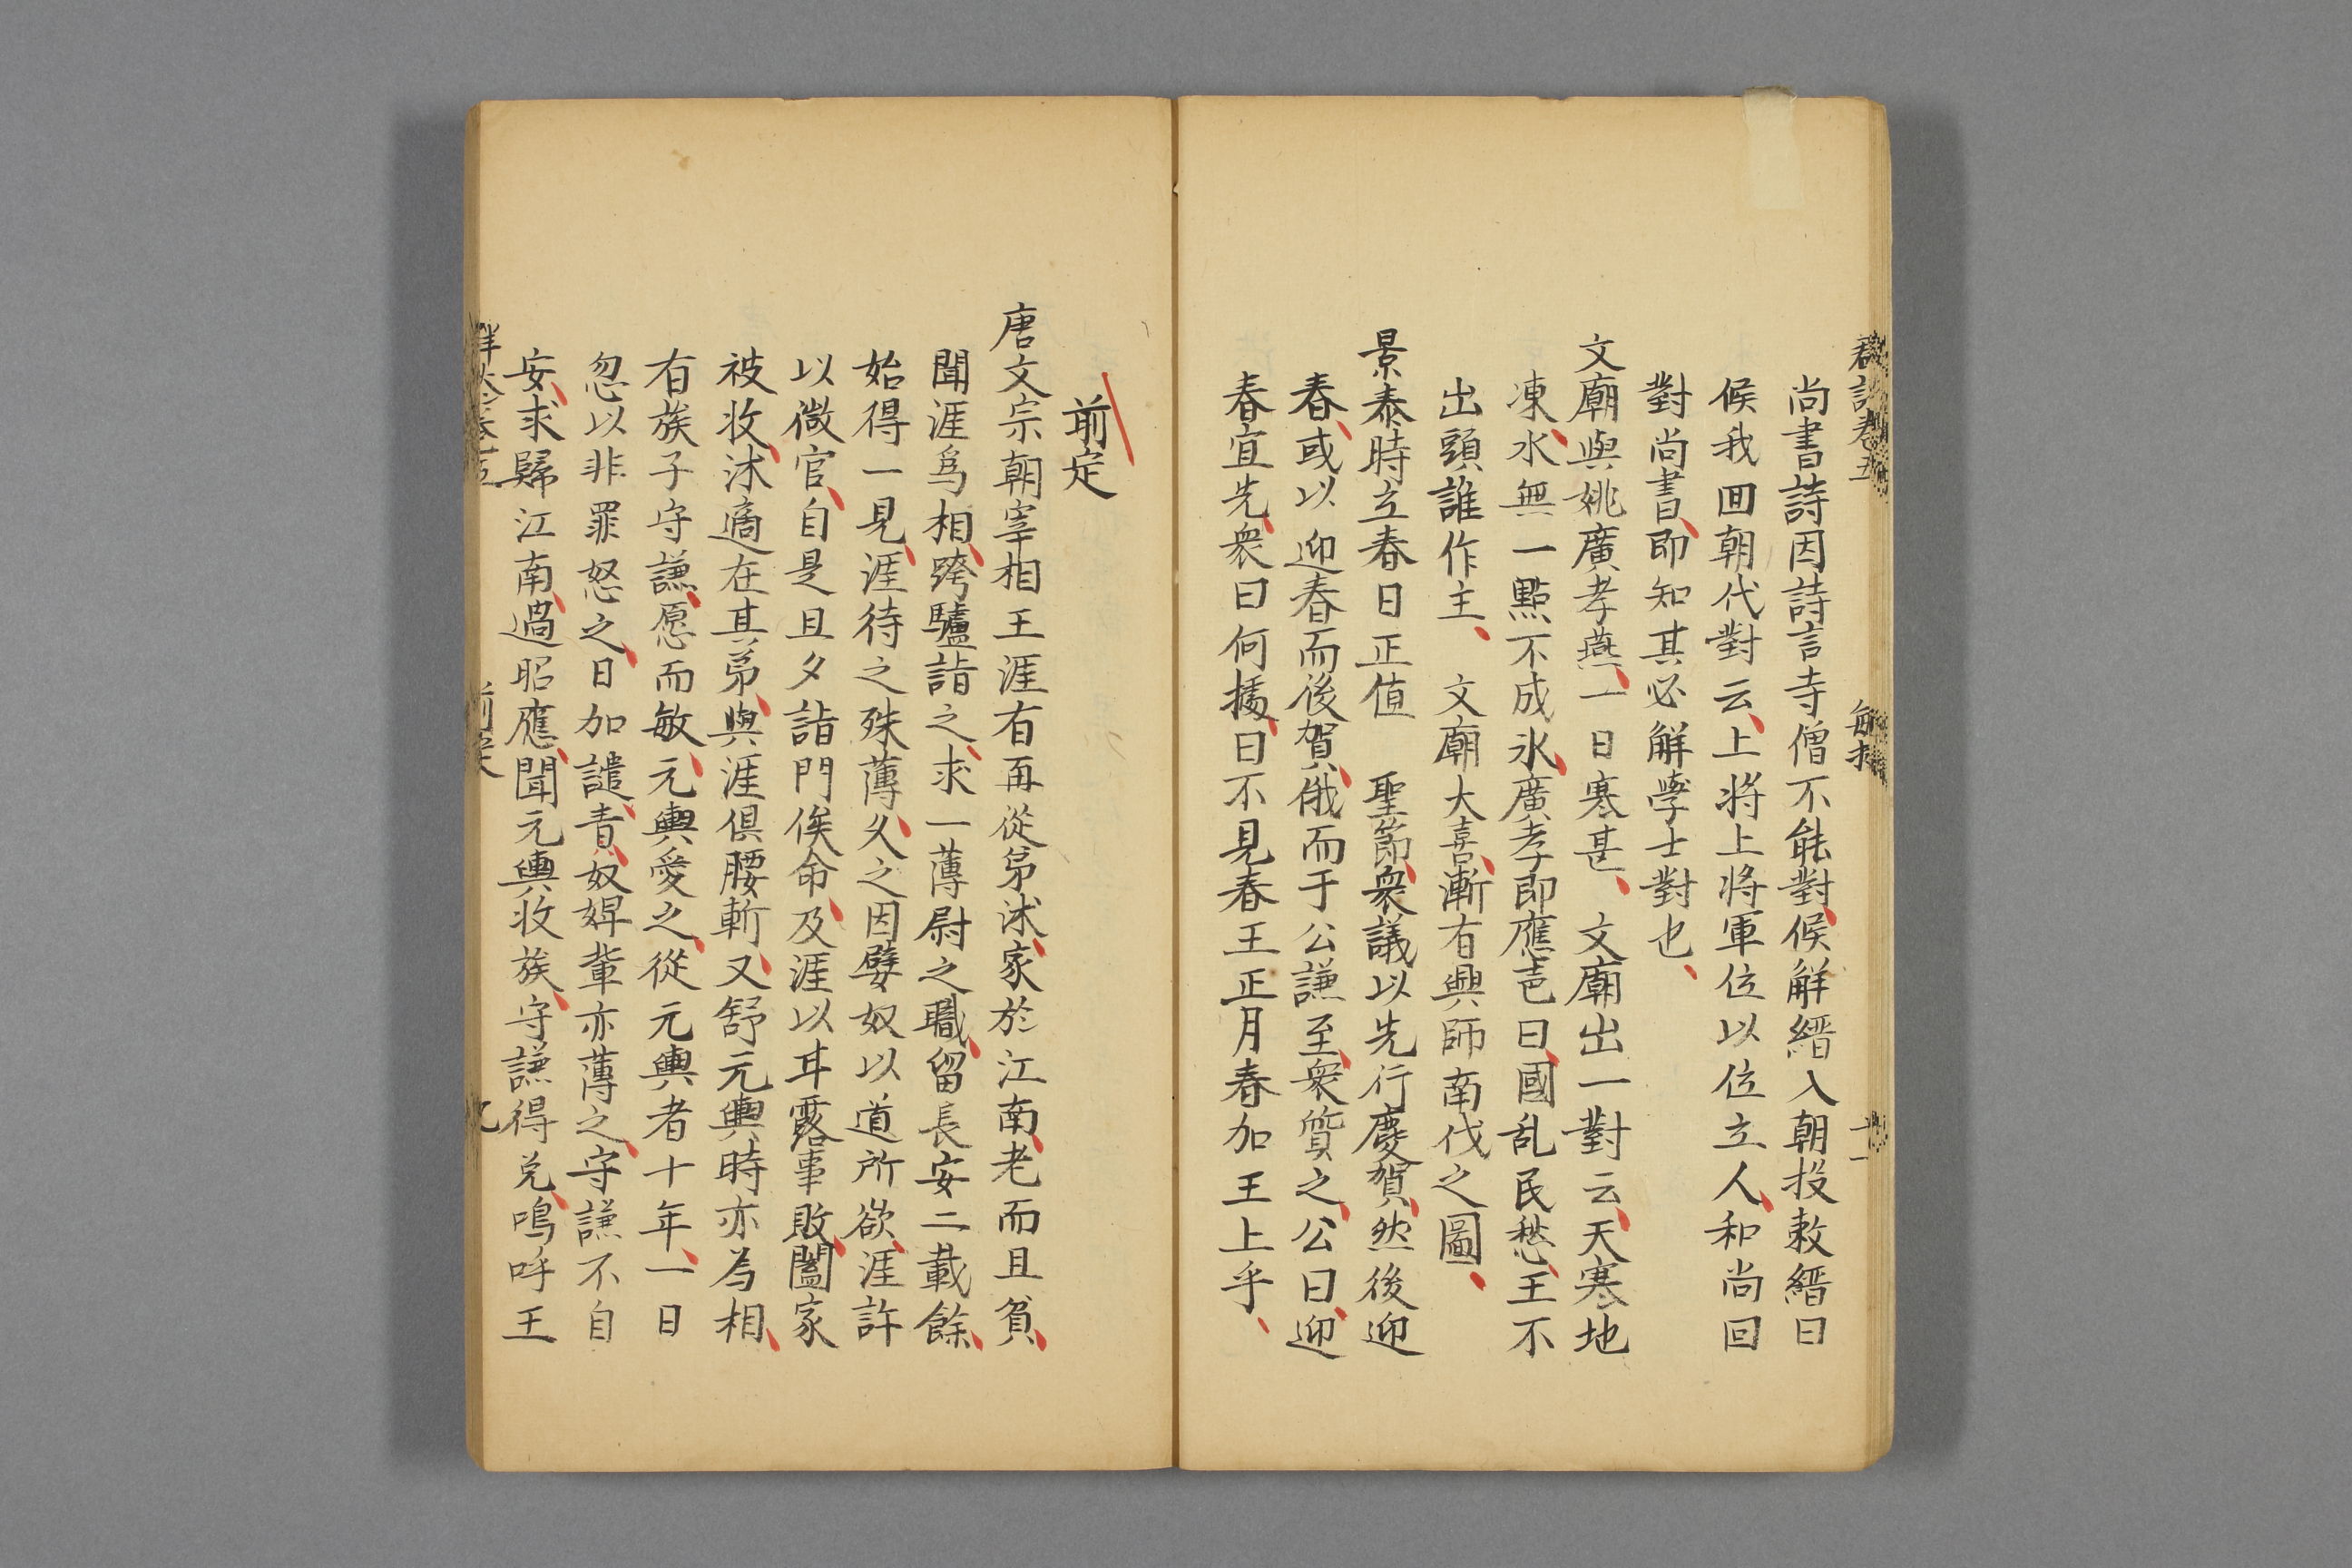 尚書詩因詩言寺僧不能對候解縉入朝投敕縉曰
候我囬朝代對云上將上將軍位以位立人和尚回
對尚書即知其必解學士對也
文廟與姚廣孝燕一日寒甚 文廟出一對云天寒地
凍水無一點不成氷廣孝即應声曰國乱民愁王不
出頭誰作主 文廟大喜漸有興師南伐之圖
景泰時立春日正值 聖節衆議以先行慶賀然後迎
春或以迎春而後賀俄而于公謙至衆質之公曰迎
春宜先衆曰何據曰不見春王正月春加王上乎
前定
唐文宗朝宰相王涯有再從弟沭家於江南老而且貧
聞涯爲相跨驢詣之求一薄尉之職留長安二載餘
始得一見涯待之殊薄久之因嬖奴以道所欲涯許
以微官自是旦夕詣門俟命及涯以甘露事敗闔家
被收沭適在其弟與涯俱腰斬又舒元輿時亦為相
有族子守謙愿而敏元輿愛之從元輿者十年一日
忽以非罪怒之日加譴責奴婢輩亦薄之守謙不自
安求歸江南過昭應聞元輿收族守謙得免嗚呼王